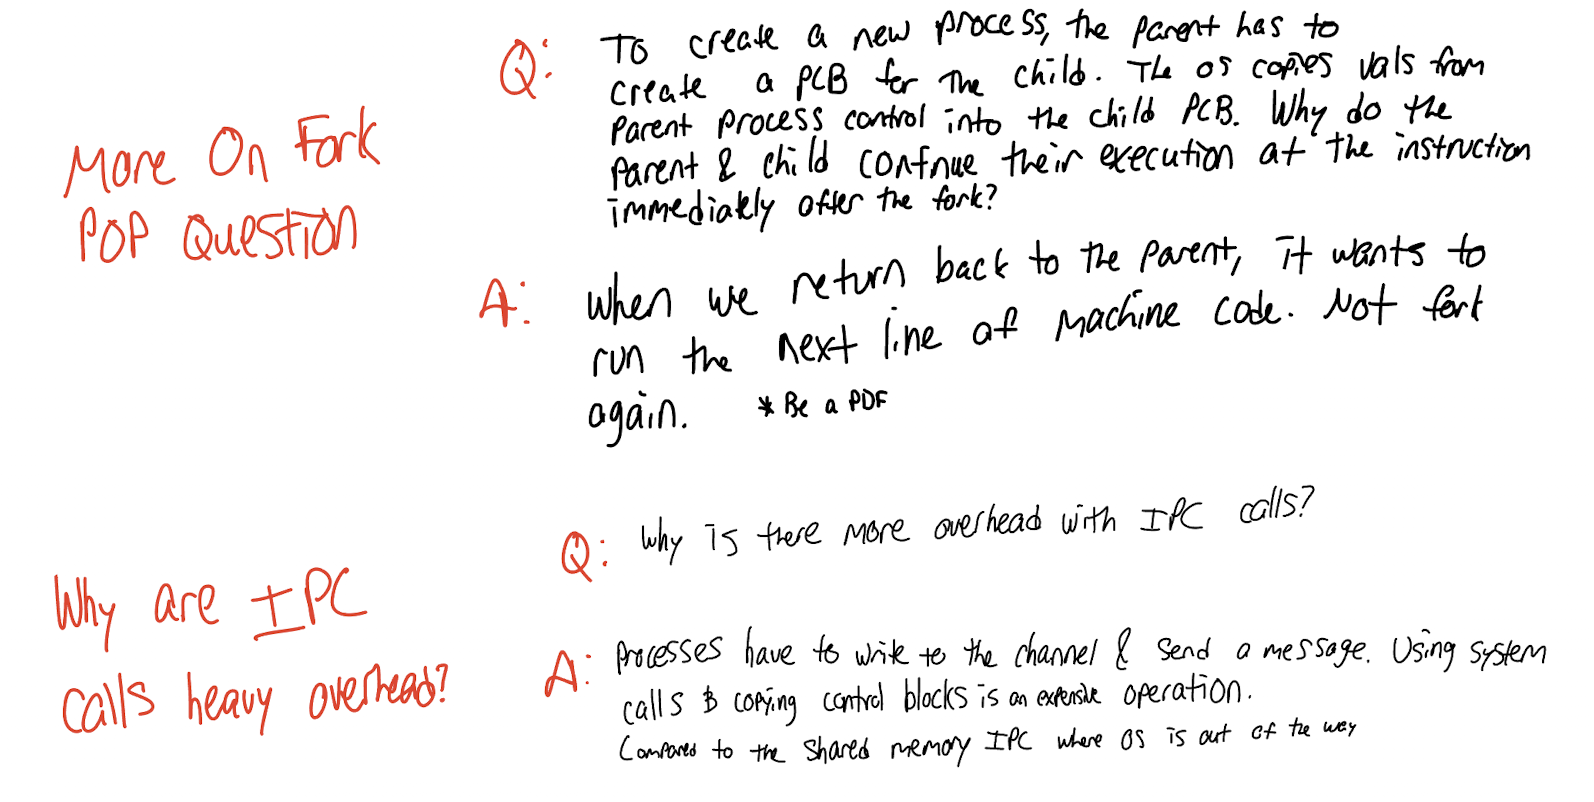 More On Fork
POP Question
Q: To create a new process, the parent has to
create a PCB for the child. The OS copies vals from
parent process control into the child PCB. Why do the
parent & child continue their execution at the instruction
immediately after the fork?
A: When we return back to the parent, it wants to
run the next line of machine code. Not fork
again. * Be a PDF
Why are IPC
calls heavy overhead?
Q: Why is there more overhead with IPC calls?
A: Processes have to write to the channel & send a message. Using system
calls & copying control blocks is an expensive operation.
Compared to the shared memory IPC where OS is out of the way